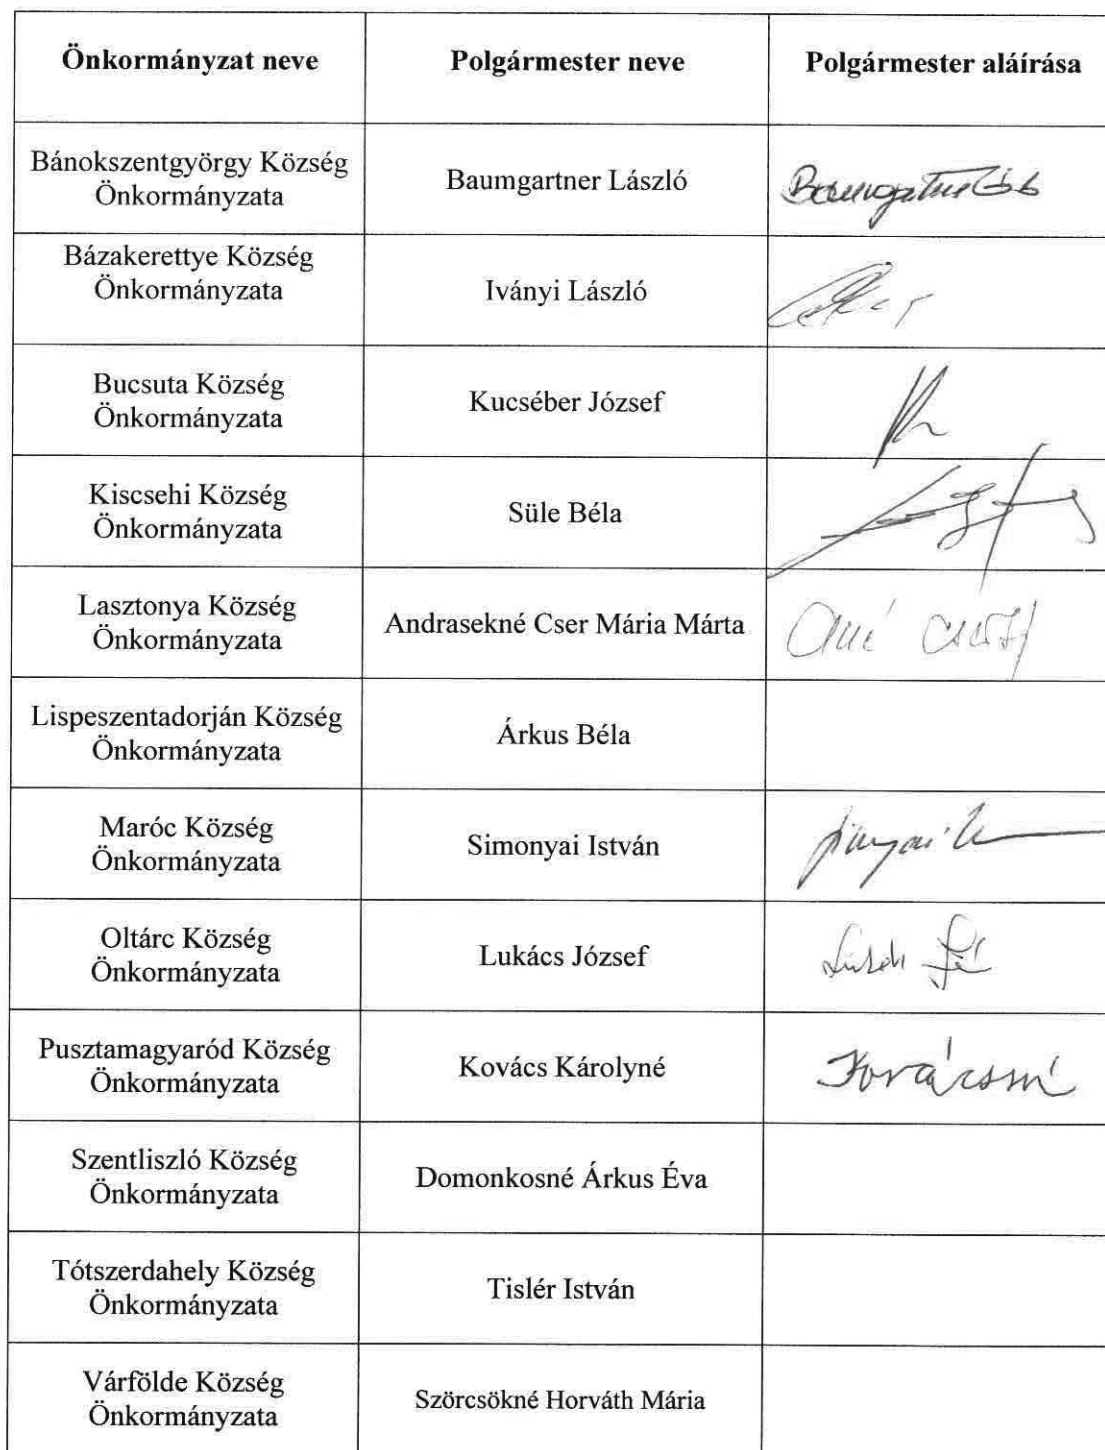 Önkormányzat neve
Polgármester neve
Polgármester aláírása
Bánokszentgyörgy Község
Önkormányzata
Baumgartner László
Bázakerettye Község
Önkormányzata
Iványi László
Bucsuta Község
Önkormányzata
Kucséber József
Kiscsehi Község
Önkormányzata
Süle Béla
Lasztonya Község
Önkormányzata
Andrasekné Cser Mária Márta
Lispeszentadorján Község
Önkormányzata
Árkus Béla
Maróc Község
Önkormányzata
Simonyai István
Oltárc Község
Önkormányzata
Lukács József
Pusztamagyaród Község
Önkormányzata
Kovács Károlyné
Kovácsné
Szentliszló Község
Önkormányzata
Domonkosné Árkus Éva
Tótszerdahely Község
Önkormányzata
Tislér István
Várfölde Község
Önkormányzata
Szörcsökné Horváth Mária